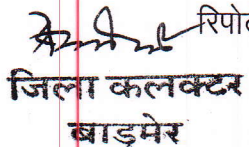 रिपो
जिला कलक्टर
बाड़मेर